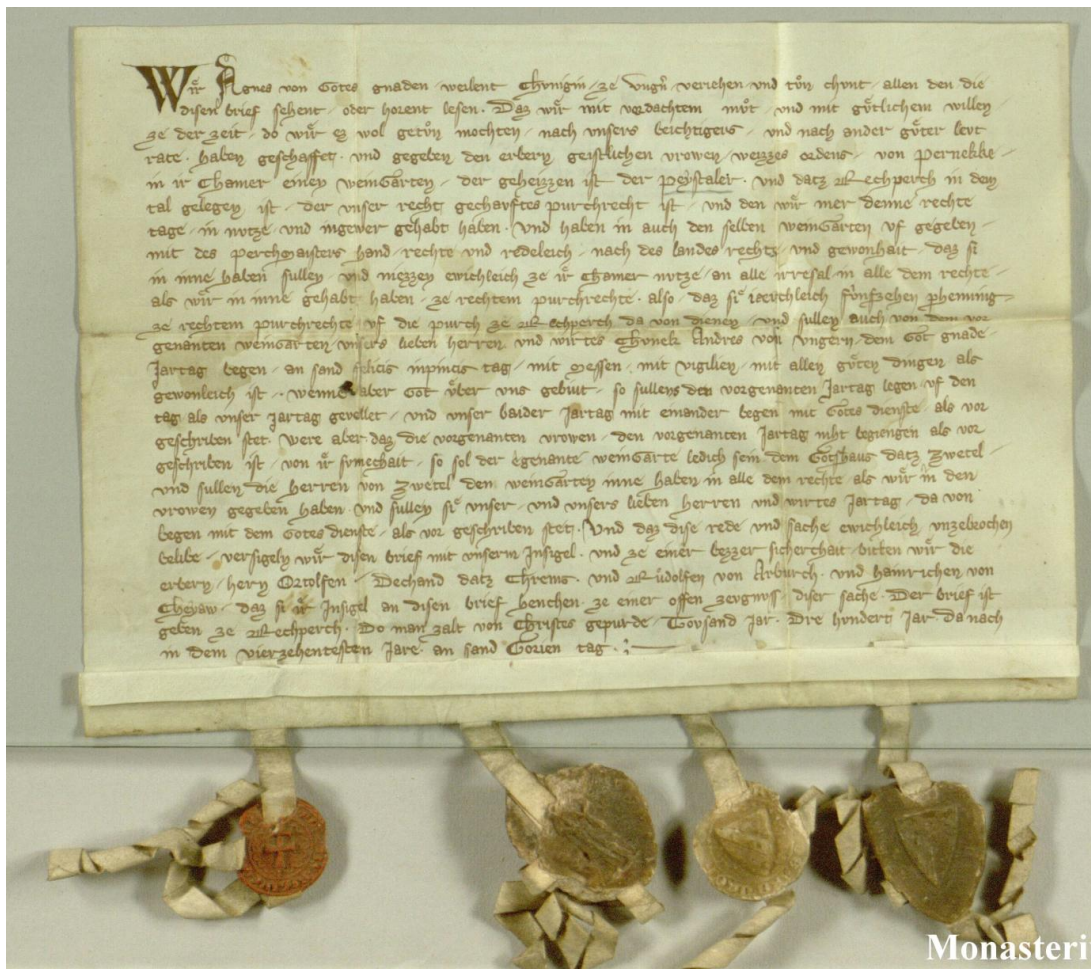 Wir Agnes von Gotes gnaden · weilent Chvnigin · ze Vngern · veriehen · vnd tvͦn chvnt · allen den die
disen brief sehent · oder horent lesen · Daz wir mit verdachtem mvͦt · vnd mit goͤtlichem willen
ze der zeit · do wir ez wol getvͦn mochten · nach vnsers beichtigers · vnd nach ander gvͤter levt
rate · haben geschaffet · vnd gegeben den erbern geistlichen vrowen · weizzes ordens · von Pernekke ·
in ir Chamer einen weingarten · der geheizzen ist der Peystaler · vnd datz Rechperch in dem
tal gelegen ist · der vnser recht gechavftes purchrecht ist · vnd den wir mer denne rechte
tage · in nvtze · vnd in gewer gehabt haben · Vnd haben in auch den selben weingarten vf gegeben ·
mit des Perchmaisters hand · rechte vnd redeleich · nach des landes recht · vnd gewonhait · daz si
in inne haben sullen · vnd niezzen ewichleich ze ir Chamer nvtze · an alle irresal in alle dem rechte ·
als wir in inne gehabt haben · ze rechtem purchrechte · also · daz si iercchleich fvnfzehen phenning ·
ze rechtem purchrechte vf die purch ze Rechperch da von dienen · vnd sullen auch von dem vor
genanten weingarten · vnsers lieben herren vnd wirtes Chvnek Andres von Vngern · dem Got gnade ·
Jartag begen · an sand felicis inpincis tag · mit Messen · mit vigilien · mit allen gvͤten dingen als
gewonleich ist · wenne aber Got vͤber vns gebivt · so sullens den vorgenanten Jartag legen vf den
tag als vnser Jartag gevellet · vnd vnser baider Jartag mit einander begen mit Gotes dienste · als vor
geschriben stet · were aber daz die vorgenanten vrowen · den vorgenanten Jartag niht begiengen als vor
geschriben ist · von ir svmechait · so sol der egenante weingarte ledich sein dem Gotshaus datz Zwetel ·
vnd sullen die herren von Zwetel den weingarten inne haben in alle dem rechte als wir in den
vrowen gegeben haben · vnd sullen si vnser · vnd vnsers lieben herren vnd wirtes Jartag · da von
begen mit dem Gotes dienste · als vor geschriben stet · Vnd daz dise rede vnd sache ewichleich vnzebrochen
belibe · versigeln wir disen brief mit vnserm Insigel · vnd ze einer bezzer sicherhait · bitten wir die
erbern · hern Ortolfen · Dechand datz Chrems · vnd Rvͦdolfen von Arburch · vnd hainrichen von
Cheyaw · daz si ir Insigel an disen brief henchen · ze einer offen zevgnvss · diser sache · Der brief ist
geben ze Rechperch · Do man zalt von Christes gepurde · Tovsand Jar · Dre hvndert Jar · da nach
in dem vierzehentesten Jare · an sand Gorien tag ·
Monasteri